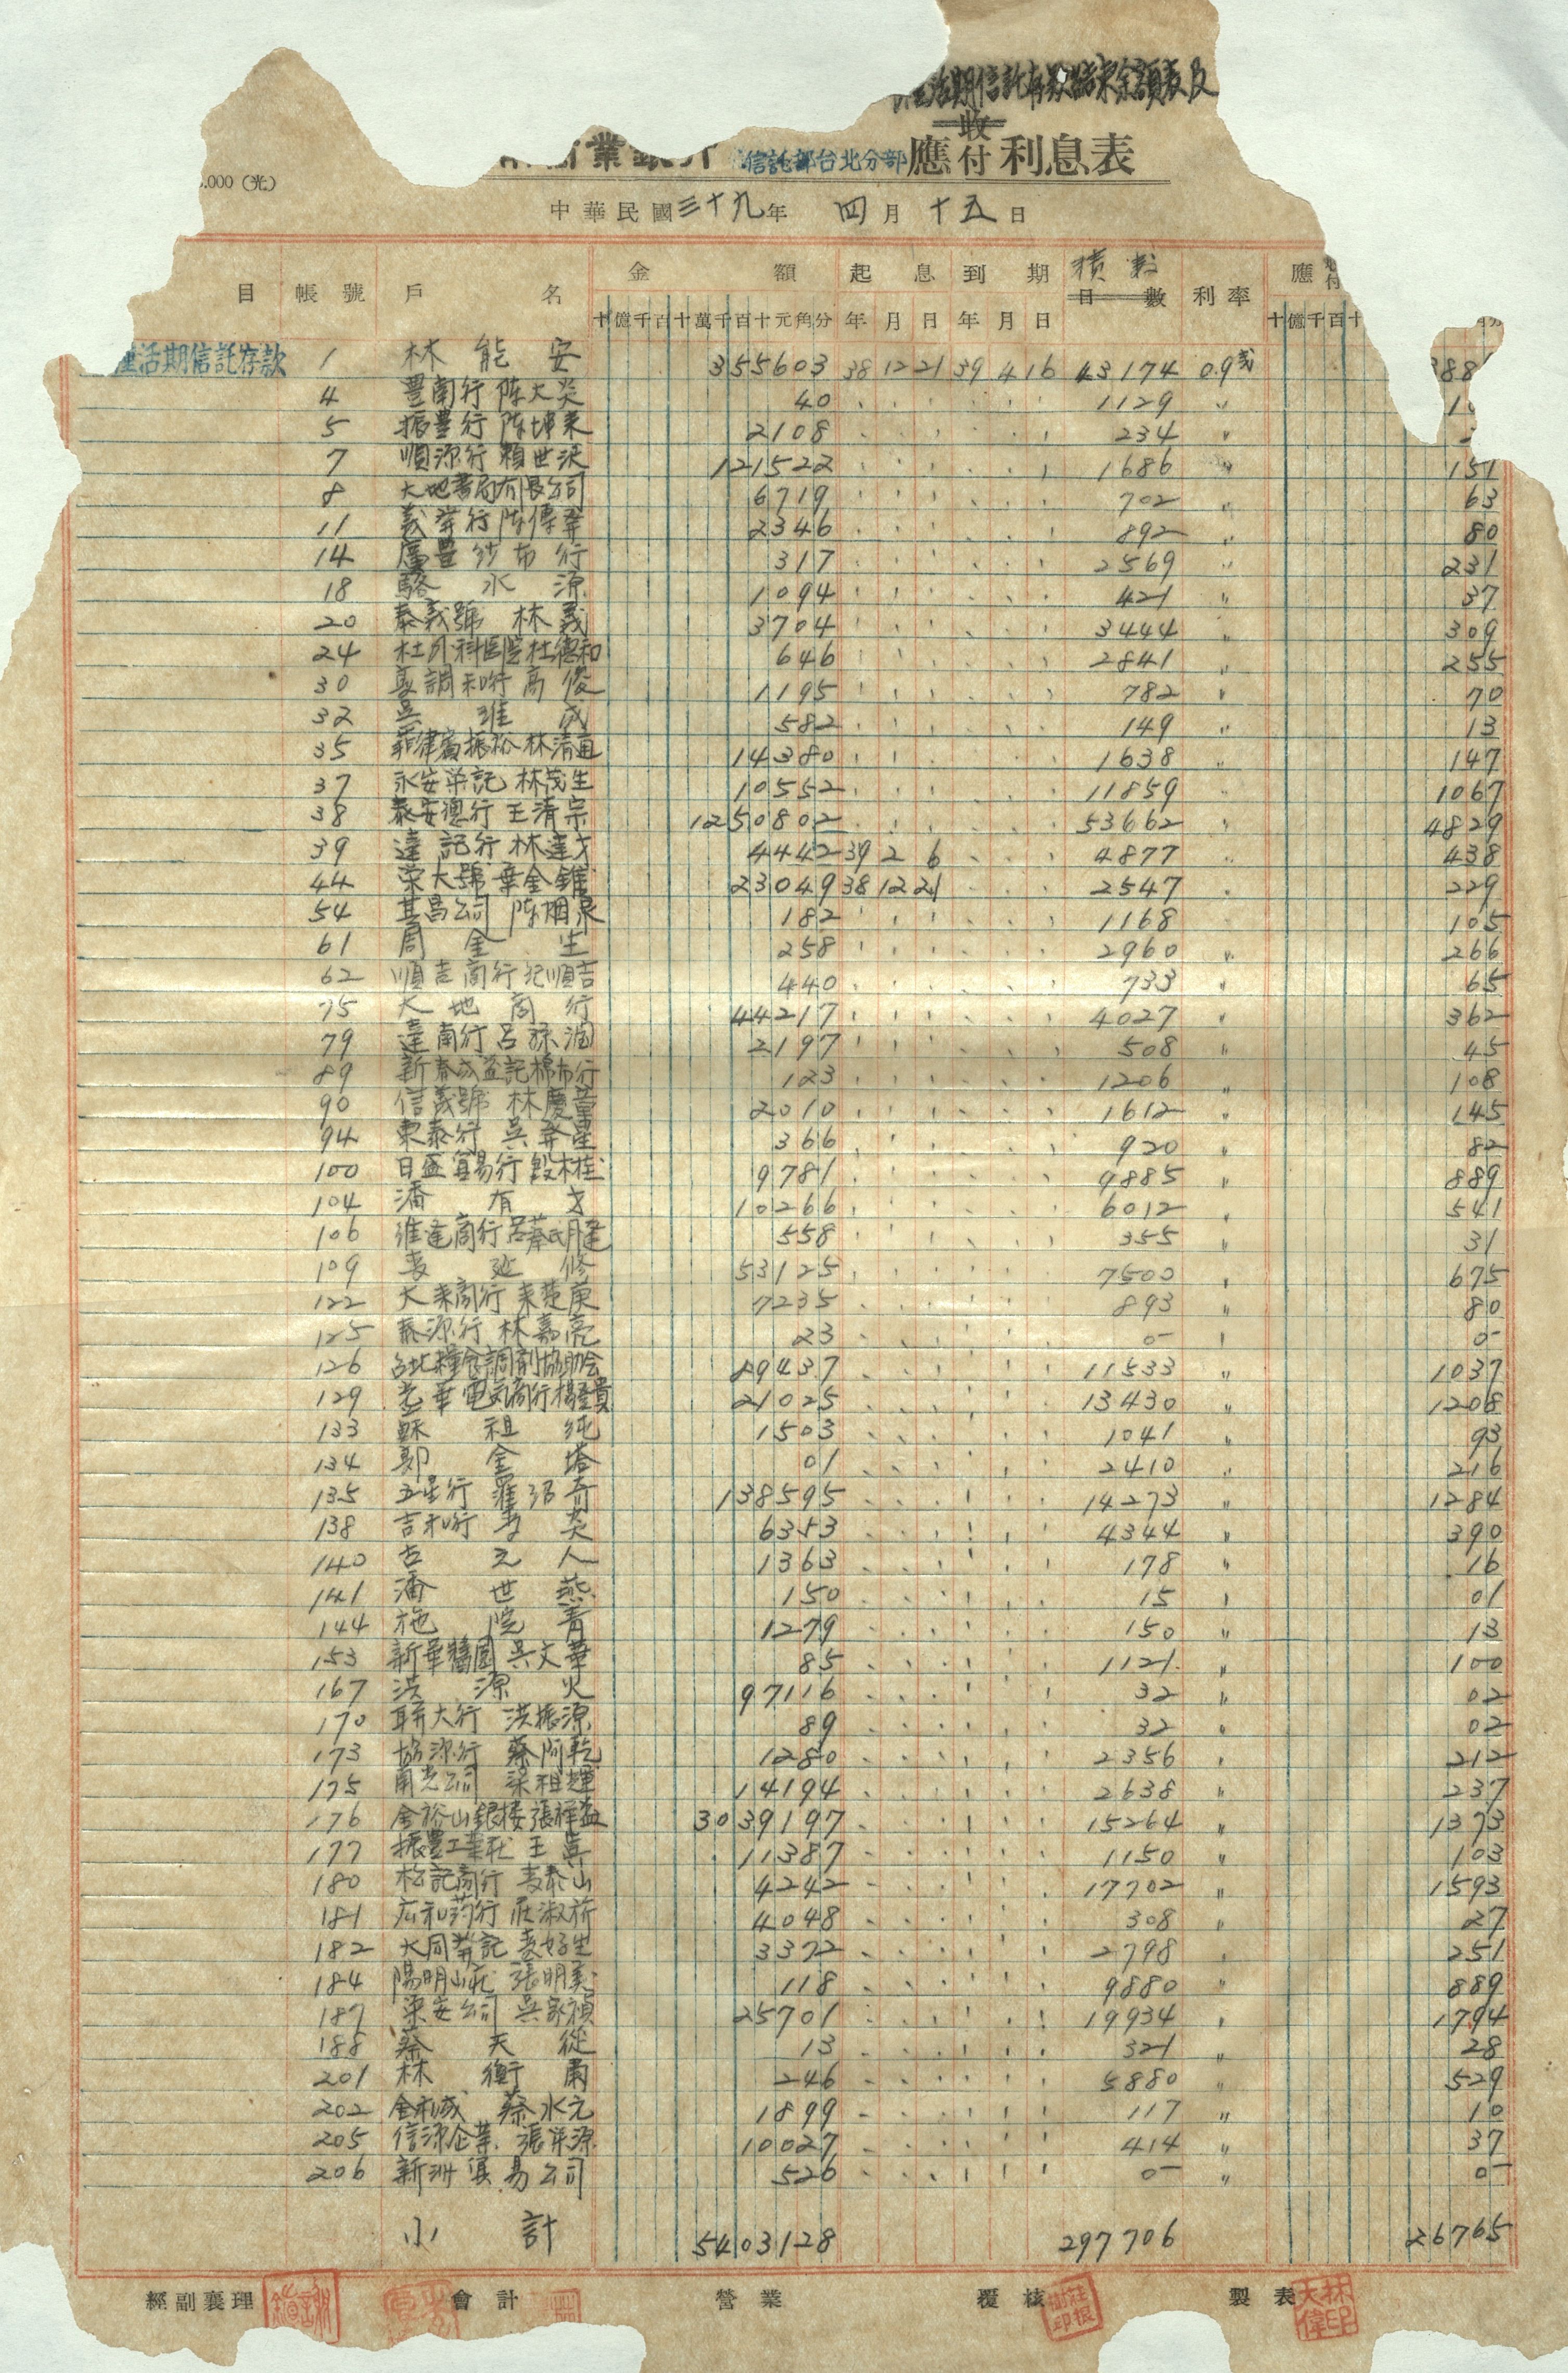 活期信託存款結束余額表及
業銀行 信託部台北分部 應收付利息表
.000 (光)
中華民國三十九年 四月十五日
目 帳號 戶名 金額 起息 到期 積数 日數 利率 應付
十億千百十萬千百十元角分 年月日 年月日 十億千百十
活期信託存款 1 林能安 355603 38 12 21 39 4 16 43174 0.9 388
4 豊南行 陈大炎 40 1129 〃
5 振豊行 陈坤来 2108 234 〃
7 順源行 賴世洪 121522 1686 〃 151
8 大地書局有限公司 6719 702 〃 63
11 義峯行 陈傳 2346 892 〃 80
14 廣豊紗布行 317 2569 〃 231
18 駱水源 1094 421 〃 37
20 泰義號 林義 3704 3444 〃 309
24 杜外科医院 杜德和 646 2841 〃 255
30 調和行 高俊 1195 782 〃 70
32 吳維成 582 149 〃 13
35 菲律賓振裕 林清通 14380 1638 〃 147
37 永安栄記 林茂生 10552 11859 〃 1067
38 泰安德行 王清宗 1250802 53662 〃 4829
39 達記行 林達才 4442 39 2 6 4877 〃 438
44 栄大號 葉金錐 23049 38 12 21 2547 〃 229
54 其昌公司 陈烟泉 182 1168 105
61 周金生 258 2960 〃 266
62 順吉商行 紀順吉 440 733 〃 65
75 大地商行 44217 4027 〃 362
79 達南行 呂 2197 508 〃 45
89 新泰成益記棉布行 123 1206 〃 108
90 信義號 林慶 2010 1612 〃 145
94 東泰行 吳 366 920 〃 82
100 日盛貿易行 木桂 9781 9885 〃 889
104 潘有才 10266 6012 〃 541
106 維達商行 呂蔡氏月 558 355 〃 31
109 延修 53125 7500 〃 675
122 大来商行 来楚庚 7235 893 〃 80
125 泰源行 林嘉亮 23 0- 〃 0-
126 台北糧食調剤協助会 89437 11533 〃 1037
129 光華電気商行 楊 貴 21025 13430 〃 1208
133 蘇祖純 1503 1041 〃 93
134 郭金塔 01 2410 〃 216
135 五星行 羅 奇 138595 14273 〃 1284
138 吉和行 李英 6353 4344 〃 390
140 古元人 1363 178 〃 16
141 潘世燕 150 15 〃 01
144 施院青 1279 150 〃 13
153 新華醬園 吳文華 85 1121 〃 100
167 洪源火 97116 32 〃 02
170 聯大行 洪振源 89 32 〃 02
173 協源行 蔡阿乾 1280 2356 〃 212
175 南光公司 梁祖輝 14194 2638 〃 237
176 金裕山銀楼 張祥益 3039197 15264 〃 1373
177 振豊工業社 王 11387 1150 〃 103
180 松記商行 泰山 4242 17702 〃 1593
181 広和葯行 莊淑 4048 308 〃 27
182 大同 記 好生 3372 2798 〃 251
184 陽明山莊 張明 118 9880 〃 889
187 栄安公司 吳家禎 25701 19934 〃 1794
188 蔡天從 13 321 〃 28
201 林衡 246 5880 〃 529
202 金和成 蔡水元 1899 117 〃 10
205 信源企業 張栄源 10027 414 〃 37
206 新洲貿易公司 526 0- 〃 0-
小計 5403128 297706 26765
經副襄理 會計 營業 覆核 製表 林大偉印